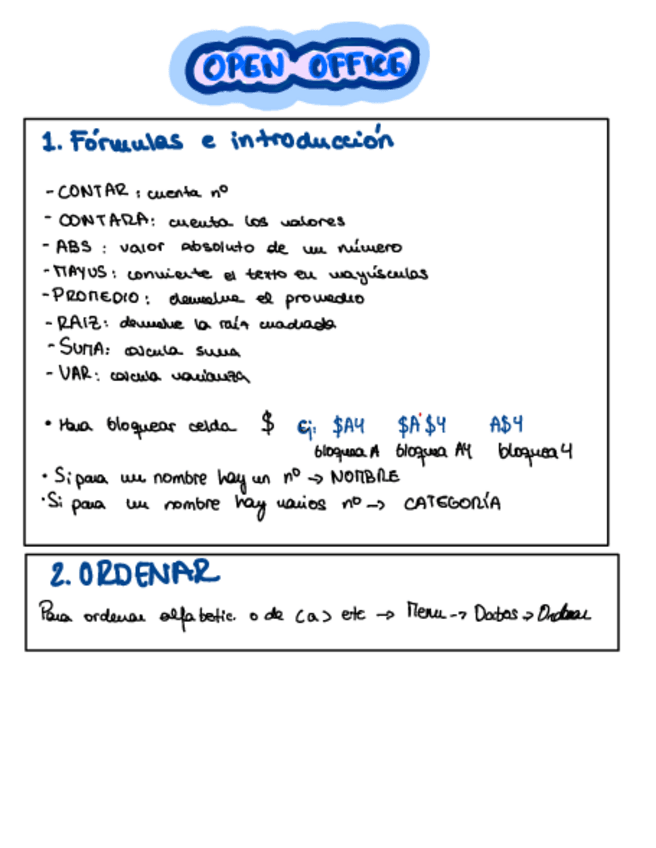 OPEN OFFICE
1. Fórmulas e introducción
- CONTAR : cuenta nº
- CONTARA: cuenta los valores
- ABS : valor absoluto de un número
- MAYUS: convierte el texto en mayúsculas
- PROMEDIO: devuelve el promedio
- RAIZ: devuelve la raíz cuadrada
- SUMA: calcula suma
- VAR: calcula varianza
• Para bloquear celda $ Ej: $A4 $A$4 A$4
bloquea A bloquea A4 bloquea 4
• Si para un nombre hay un nº → NOMBRE
• Si para un nombre hay varios nº → CATEGORÍA
2. ORDENAR
Para ordenar alfabetic. o de < a > etc → Menu → Datos → Ordenar